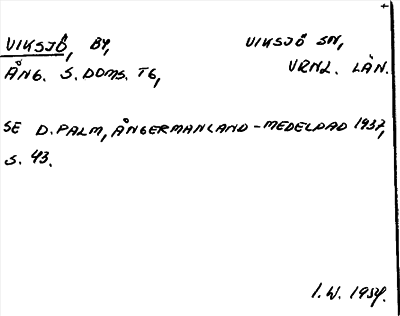 VIKSJÖ, BY, VIKSJÖ SN,
ÅNG. S. DOMS. TG, VRNL. LÄN.
SE D. PALM, ÅNGERMANLAND - MEDELPAD 1937,
S. 43.
I.W. 1954.